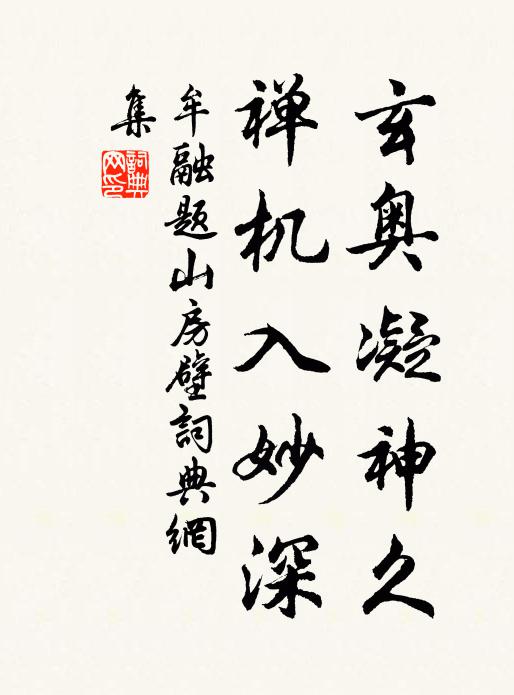 玄奥凝神久
禅机入妙深
牟融题山房壁詞典網
集
詞典
网印